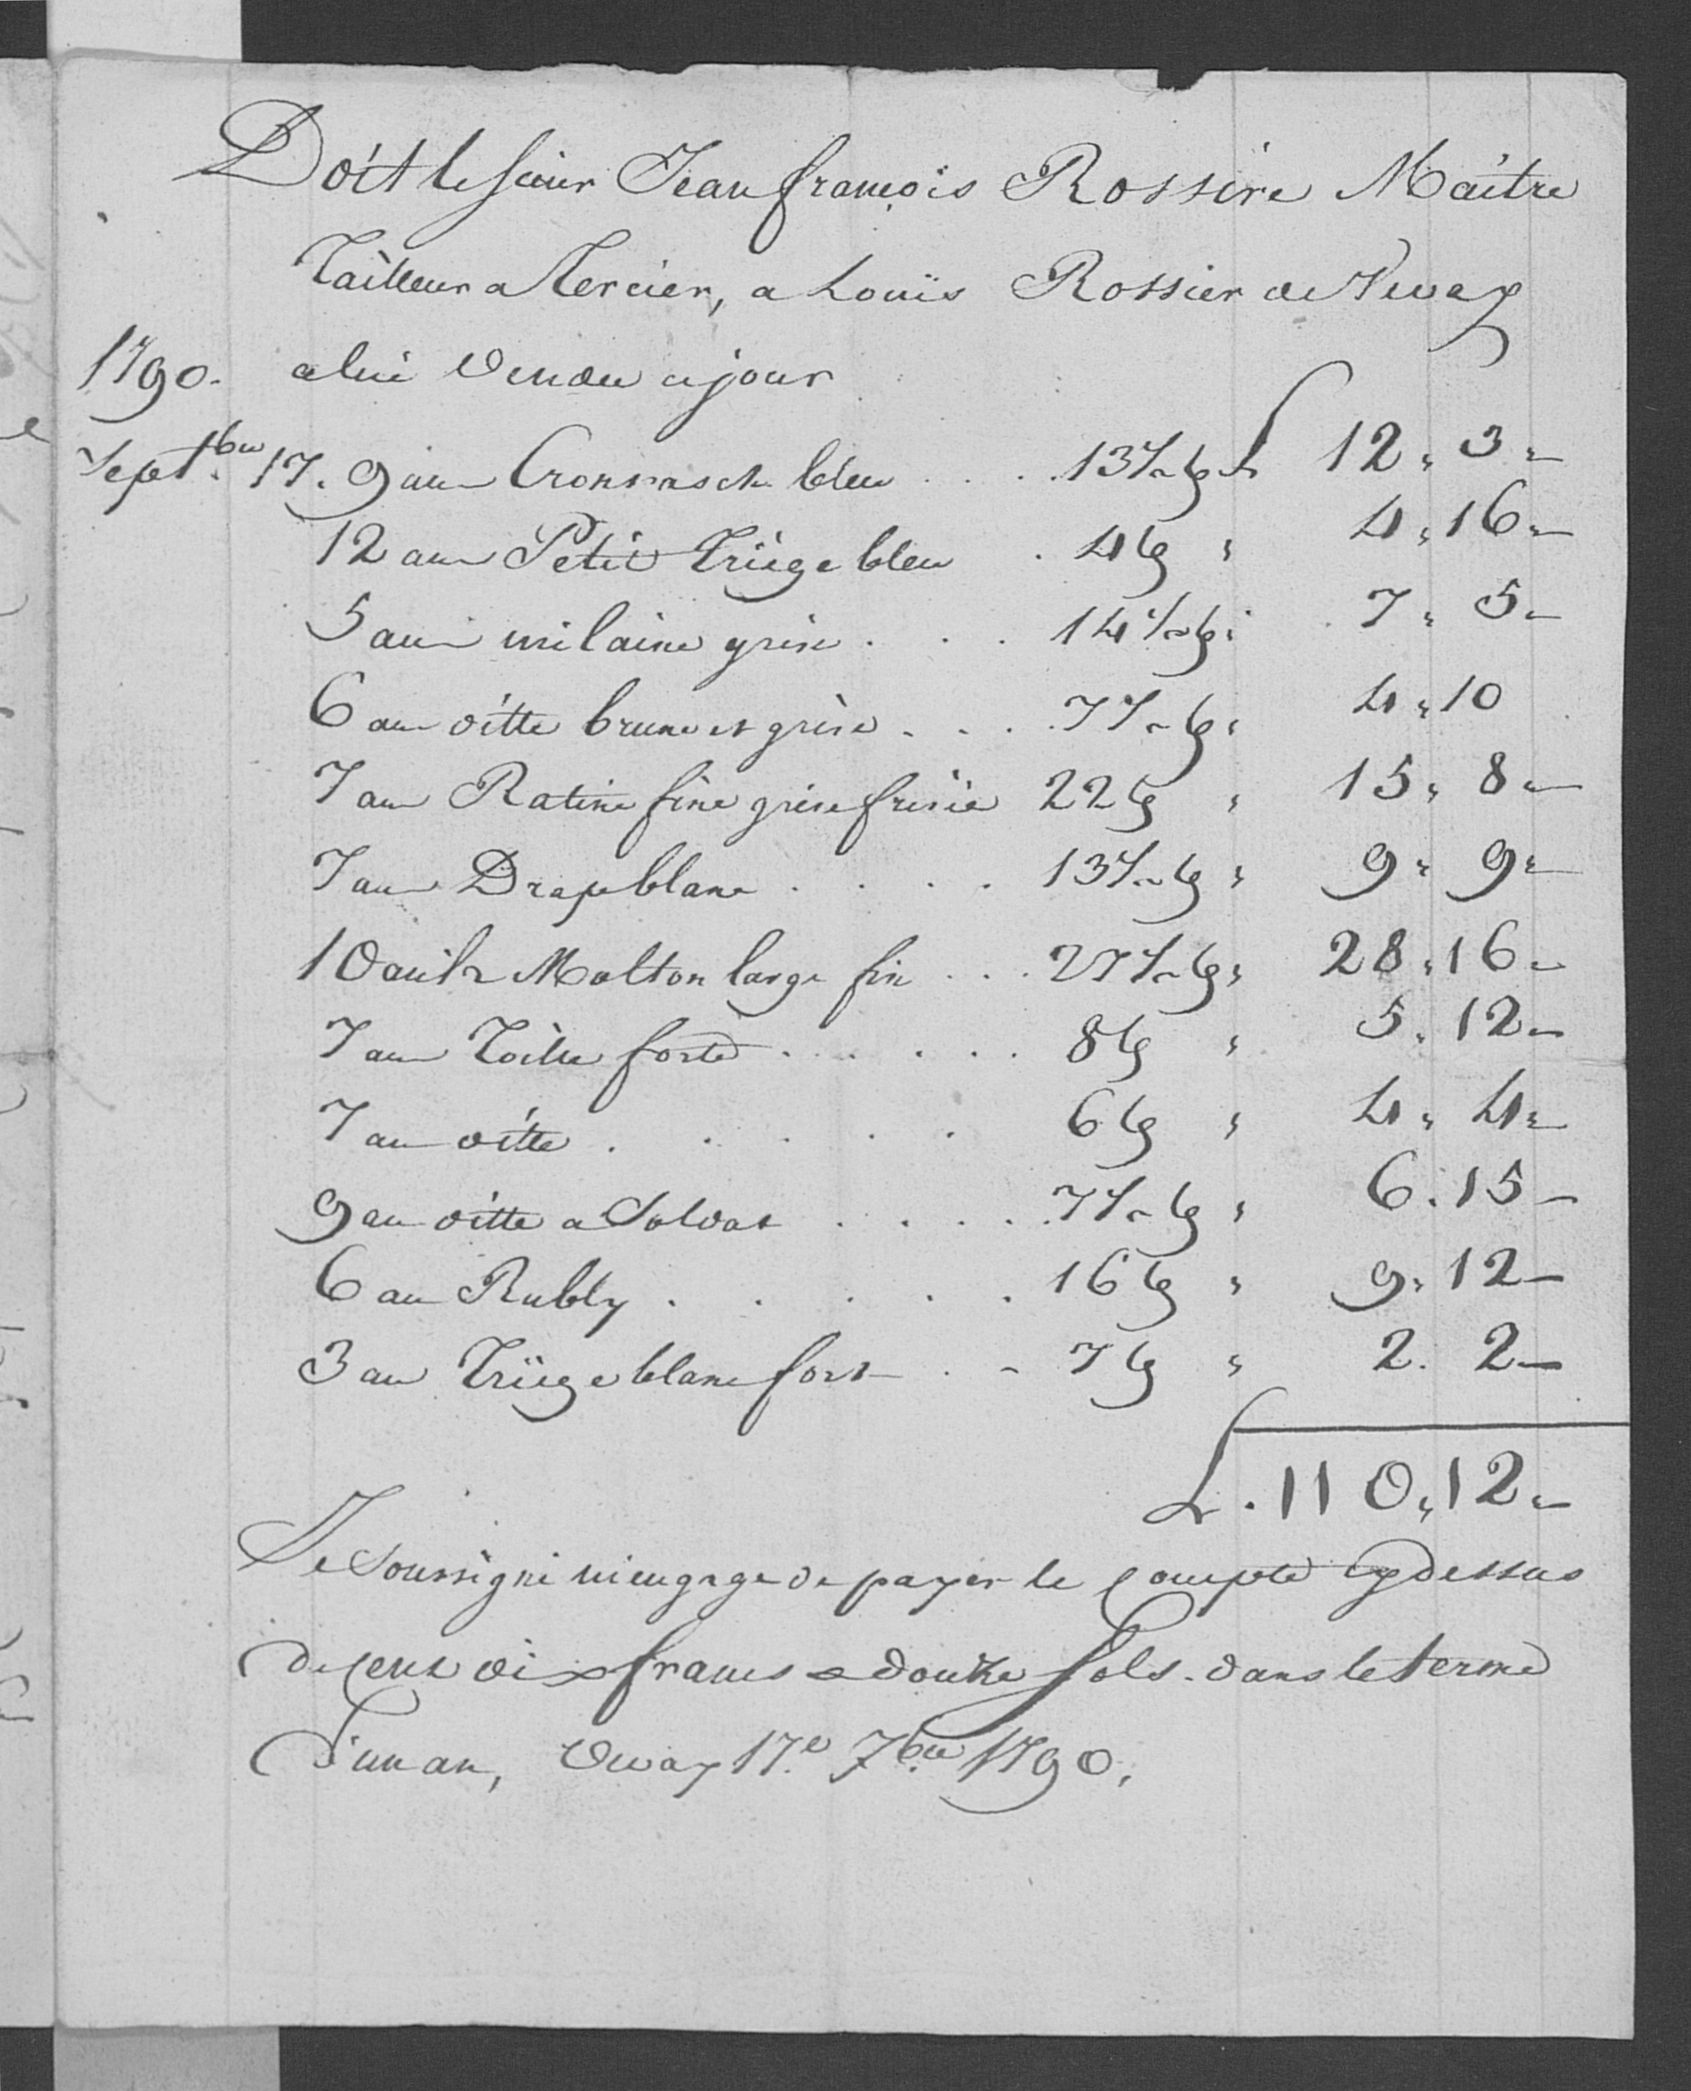 Doit le sieur Jean françois Rossire Maitre
Tailleur a Mercier, a Louis Rossier de Vevey
1790. a lui Vendu ce jour
Septbre 17. 9 au Cronrasch bleu .... 13½ b £ 12 " 3 "
12 au Petit Triège bleu . 4 b " 4 " 16 "
5 au milaine grise . . . 14½ b " 7 " 5 -
6 au ditte brune et grise . . . 7½ b " 4 " 10
7 au Ratine fine grise frisée 22 b " 15 " 8 "
7 au Drap blanc . . . . 13½ b " 9 " 9 "
10 au ½ Molton large fin . . . 27½ b " 28 " 16 -
7 au Toille forte . . . . . . 8 b " 5 . 12 -
7 au ditte . . . . . 6 b " 4 " 4 "
9 au ditte a Soldat . . . . . 7½ b " 6 . 15 -
6 au Rubly . . . . . 16 b " 9 " 12 -
3 au Triège blanc fort . - 7 b " 2 . 2 -
£ . 110 " 12 "
Je Soussigné m'engage de payer le Compte cy dessus
de Cent dix francs & douze sols dans le terme
d'un an, Vevay 17e 7bre 1790.